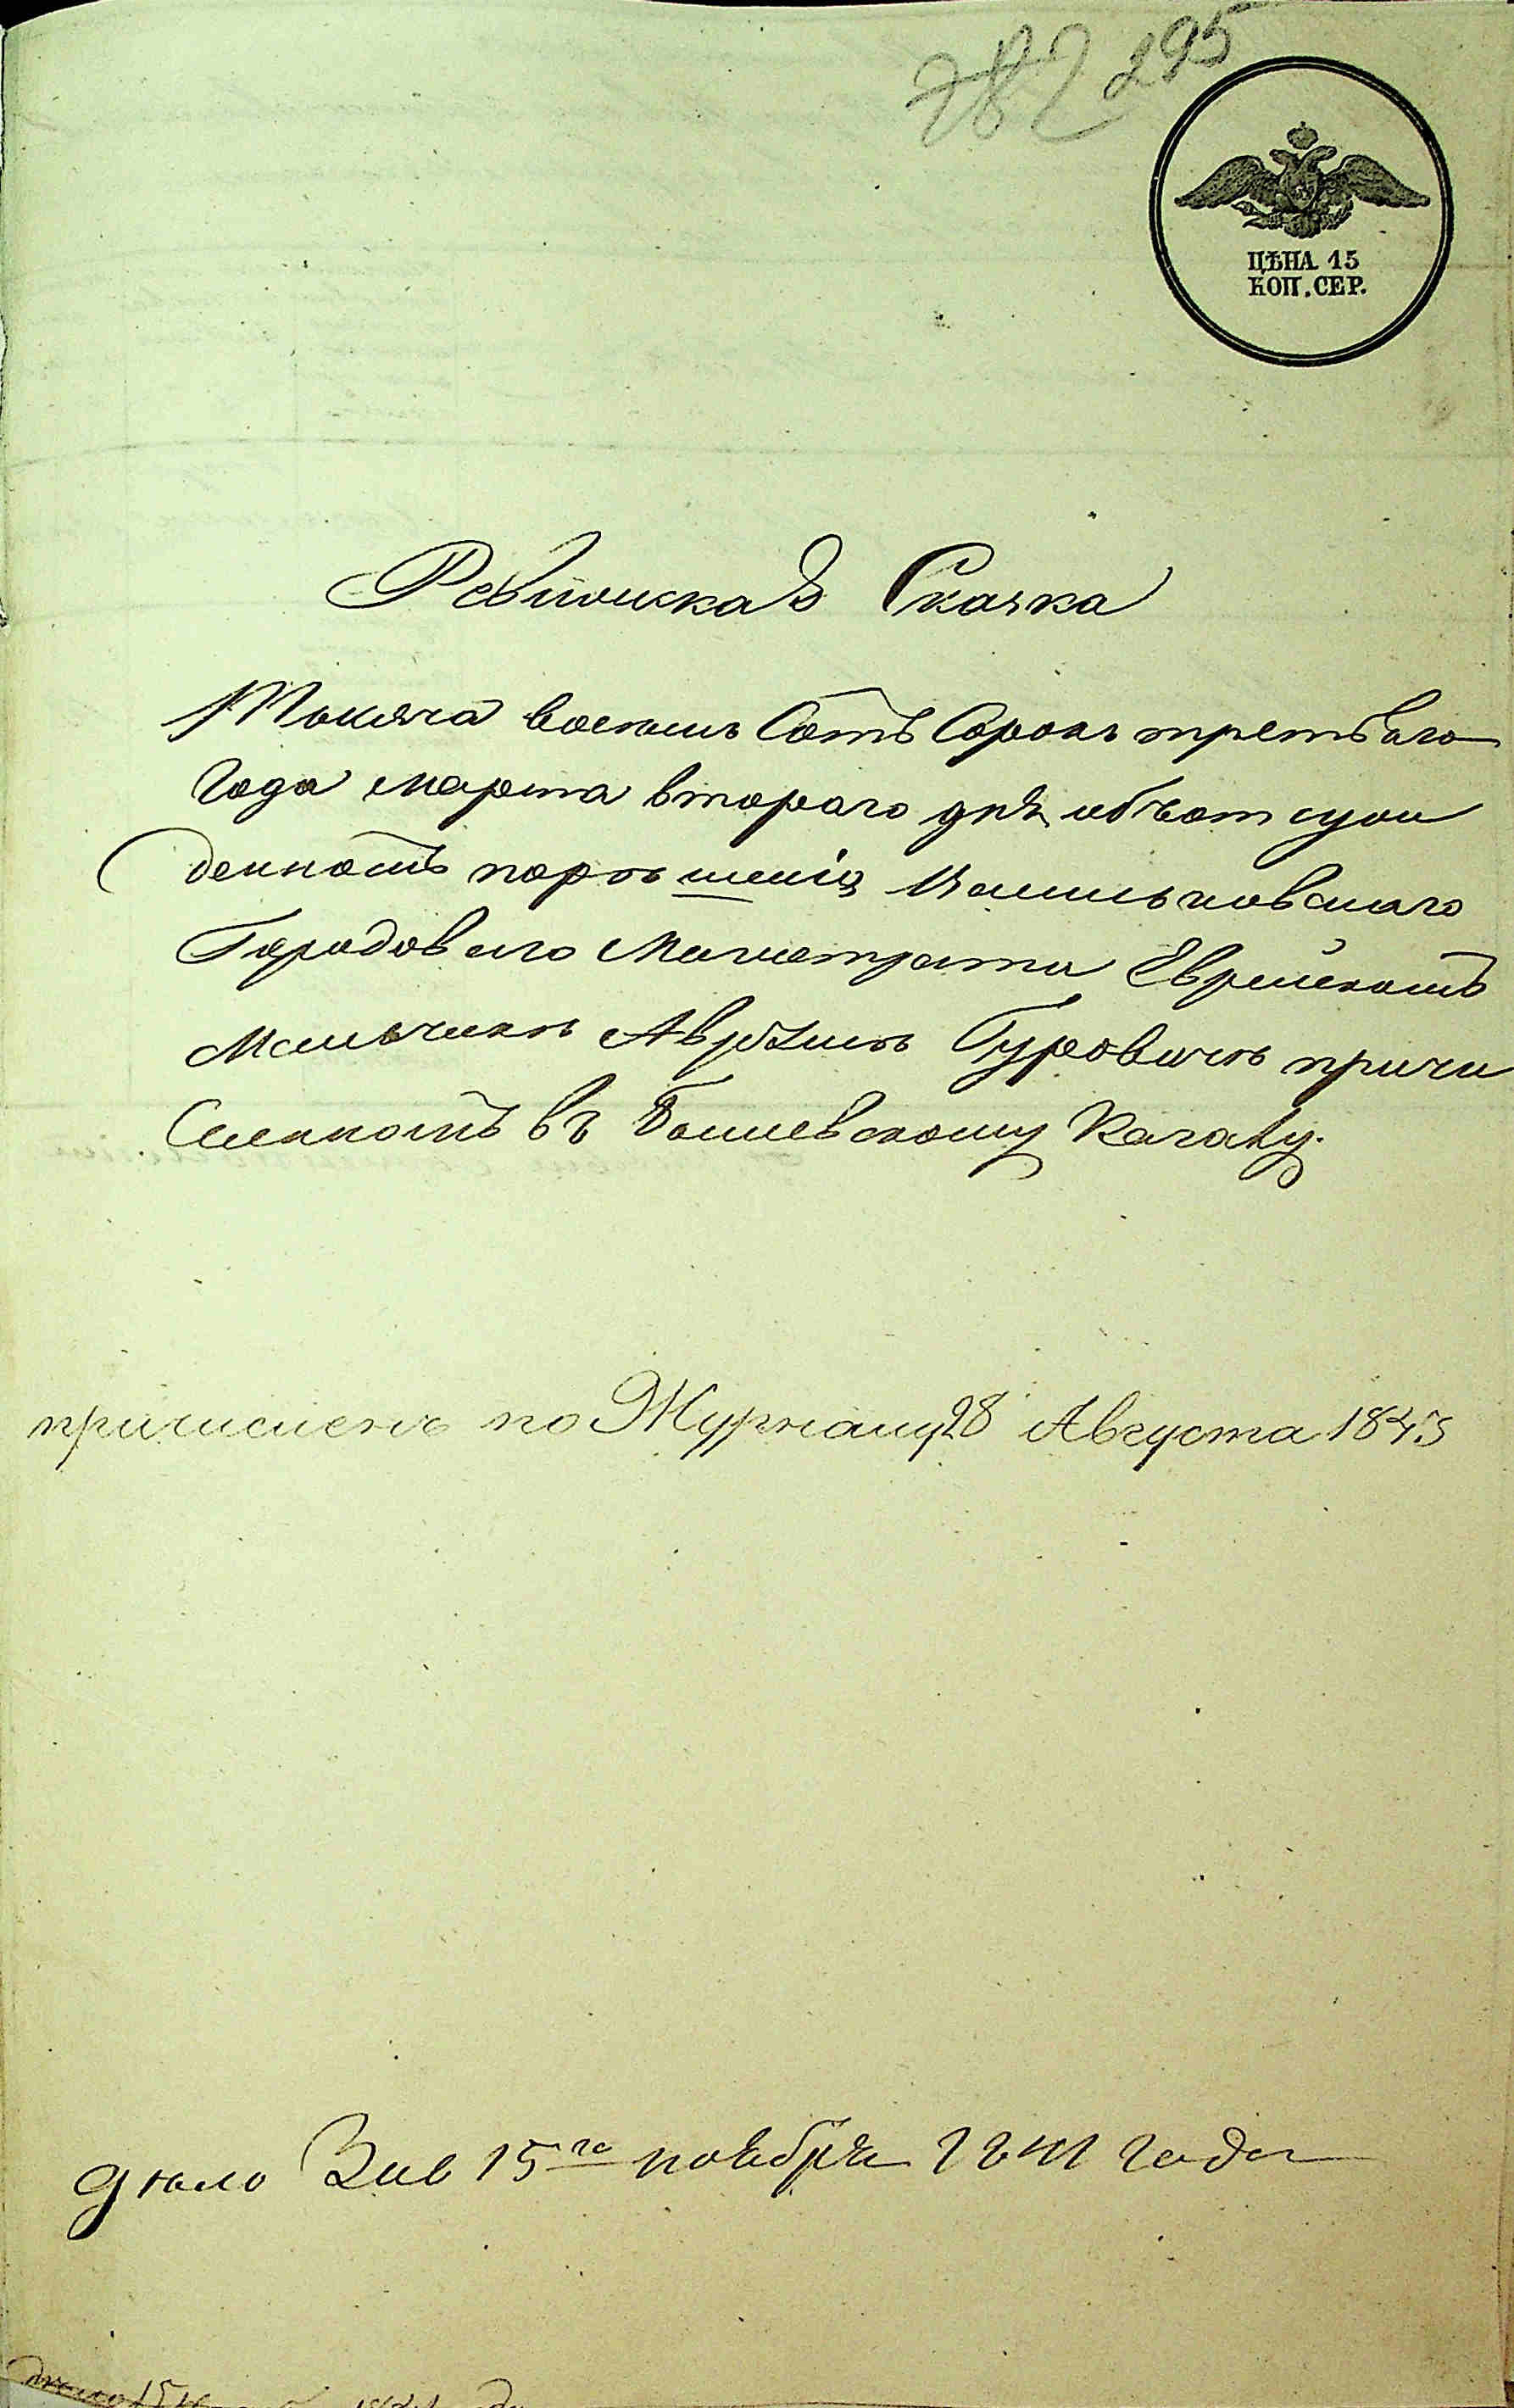 295
ЦѢНА 15
КОП. СЕР.
Ревизская Сказка
Тысяча восемь Сотъ Сорокъ третьяго
Года марта второго дня объ отсуж
денномъ по решению Васильковского
Городового Магистрата Еврейскомъ
Мальчике Аврумъ Гуровичъ причи
Сленномъ въ Кагалу.
причисленъ по Журналу 28 Августа 1843
дело 15го ноября 1841 года